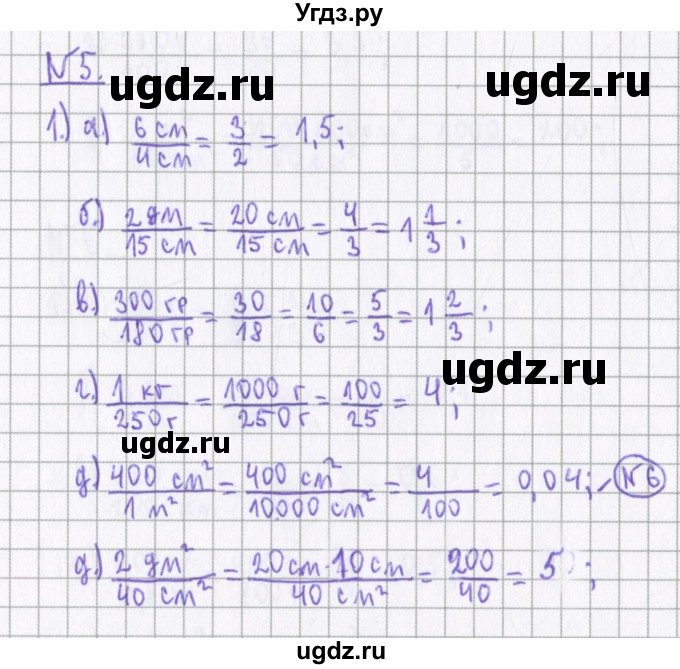 Угдз.ру
№5.
ugdz.ru ugdz.ru
1.) а) 6 см/4 см = 3/2 = 1,5;
б.) 2 дм/15 см = 20 см/15 см = 4/3 = 1 1/3;
в.) 300 гр/180 гр = 30/18 = 10/6 = 5/3 = 1 2/3;
ugdz.ru
г.) 1 кг/250 г = 1000 г/250 г = 100/25 = 4;
ugdz.ru
д.) 400 см²/1 м² = 400 см²/10000 см² = 4/100 = 0,04; №6
д.) 2 дм²/40 см² = 20 см · 10 см/40 см² = 200/40 = 5;
ugdz.ru